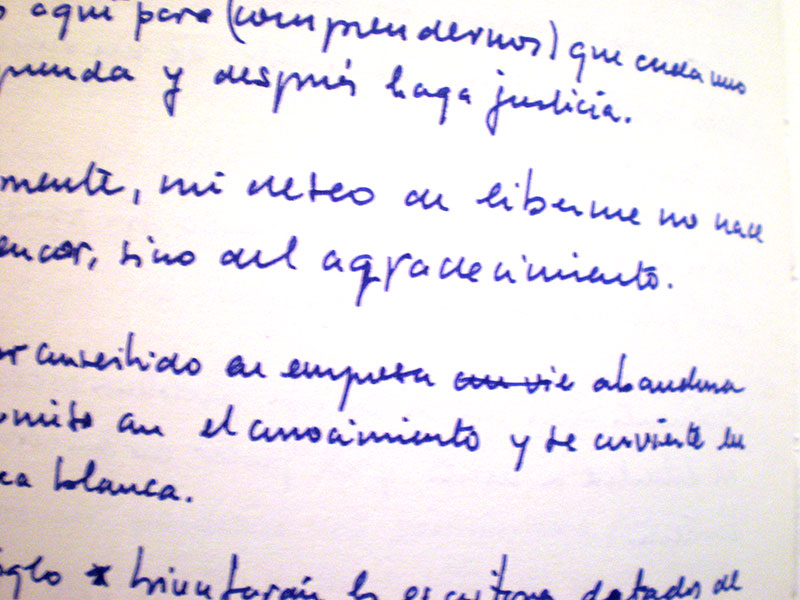 aquí para (comprendernos) que cada uno
prenda y después haga justicia.
mente, mi deseo de liberme no nace
encor, sino del agradecimiento.
or convertido en empresa abandona
en el conocimiento y se convierte en
ca blanca.
iglo triunfarán los escritores dotados de